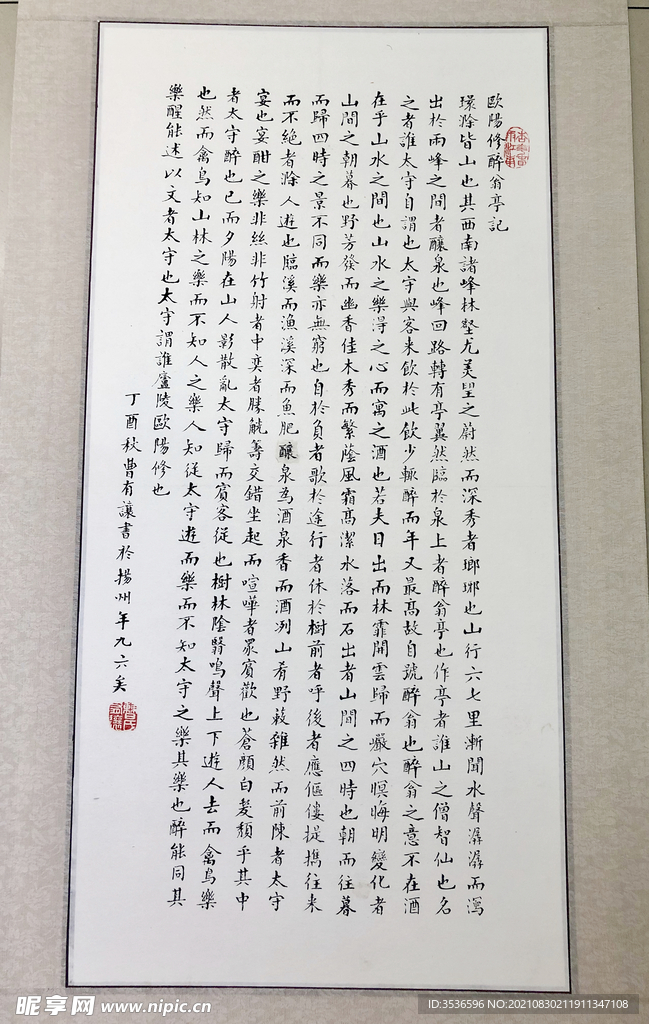 歐陽修醉翁亭記
環滁皆山也其西南諸峰林壑尤美望之蔚然而深秀者瑯琊也山行六七里漸聞水聲潺潺而瀉
出於兩峰之間者釀泉也峰回路轉有亭翼然臨於泉上者醉翁亭也作亭者誰山之僧智仙也名
之者誰太守自謂也太守與客來飲於此飲少輒醉而年又最高故自號醉翁也醉翁之意不在酒
在乎山水之間也山水之樂得之心而寓之酒也若夫日出而林霏開雲歸而巖穴暝晦明變化者
山間之朝暮也野芳發而幽香佳木秀而繁蔭風霜高潔水落而石出者山間之四時也朝而往暮
而歸四時之景不同而樂亦無窮也自於負者歌於途行者休於樹前者呼後者應傴僂提攜往來
而不絕者滁人遊也臨溪而漁溪深而魚肥釀泉為酒泉香而酒冽山肴野蔌雜然而前陳者太守
宴也宴酣之樂非絲非竹射者中奕者勝觥籌交錯坐起而喧嘩者眾賓歡也蒼顏白髮頹乎其中
者太守醉也已而夕陽在山人影散亂太守歸而賓客從也樹林陰翳鳴聲上下遊人去而禽鳥樂
也然而禽鳥知山林之樂而不知人之樂人知從太守遊而樂而不知太守之樂其樂也醉能同其
樂醒能述以文者太守也太守謂誰廬陵歐陽修也
丁酉秋曹有讓書於揚州年九六矣
昵享网 www.nipic.cn
ID:3536596 NO:20210830211911347108